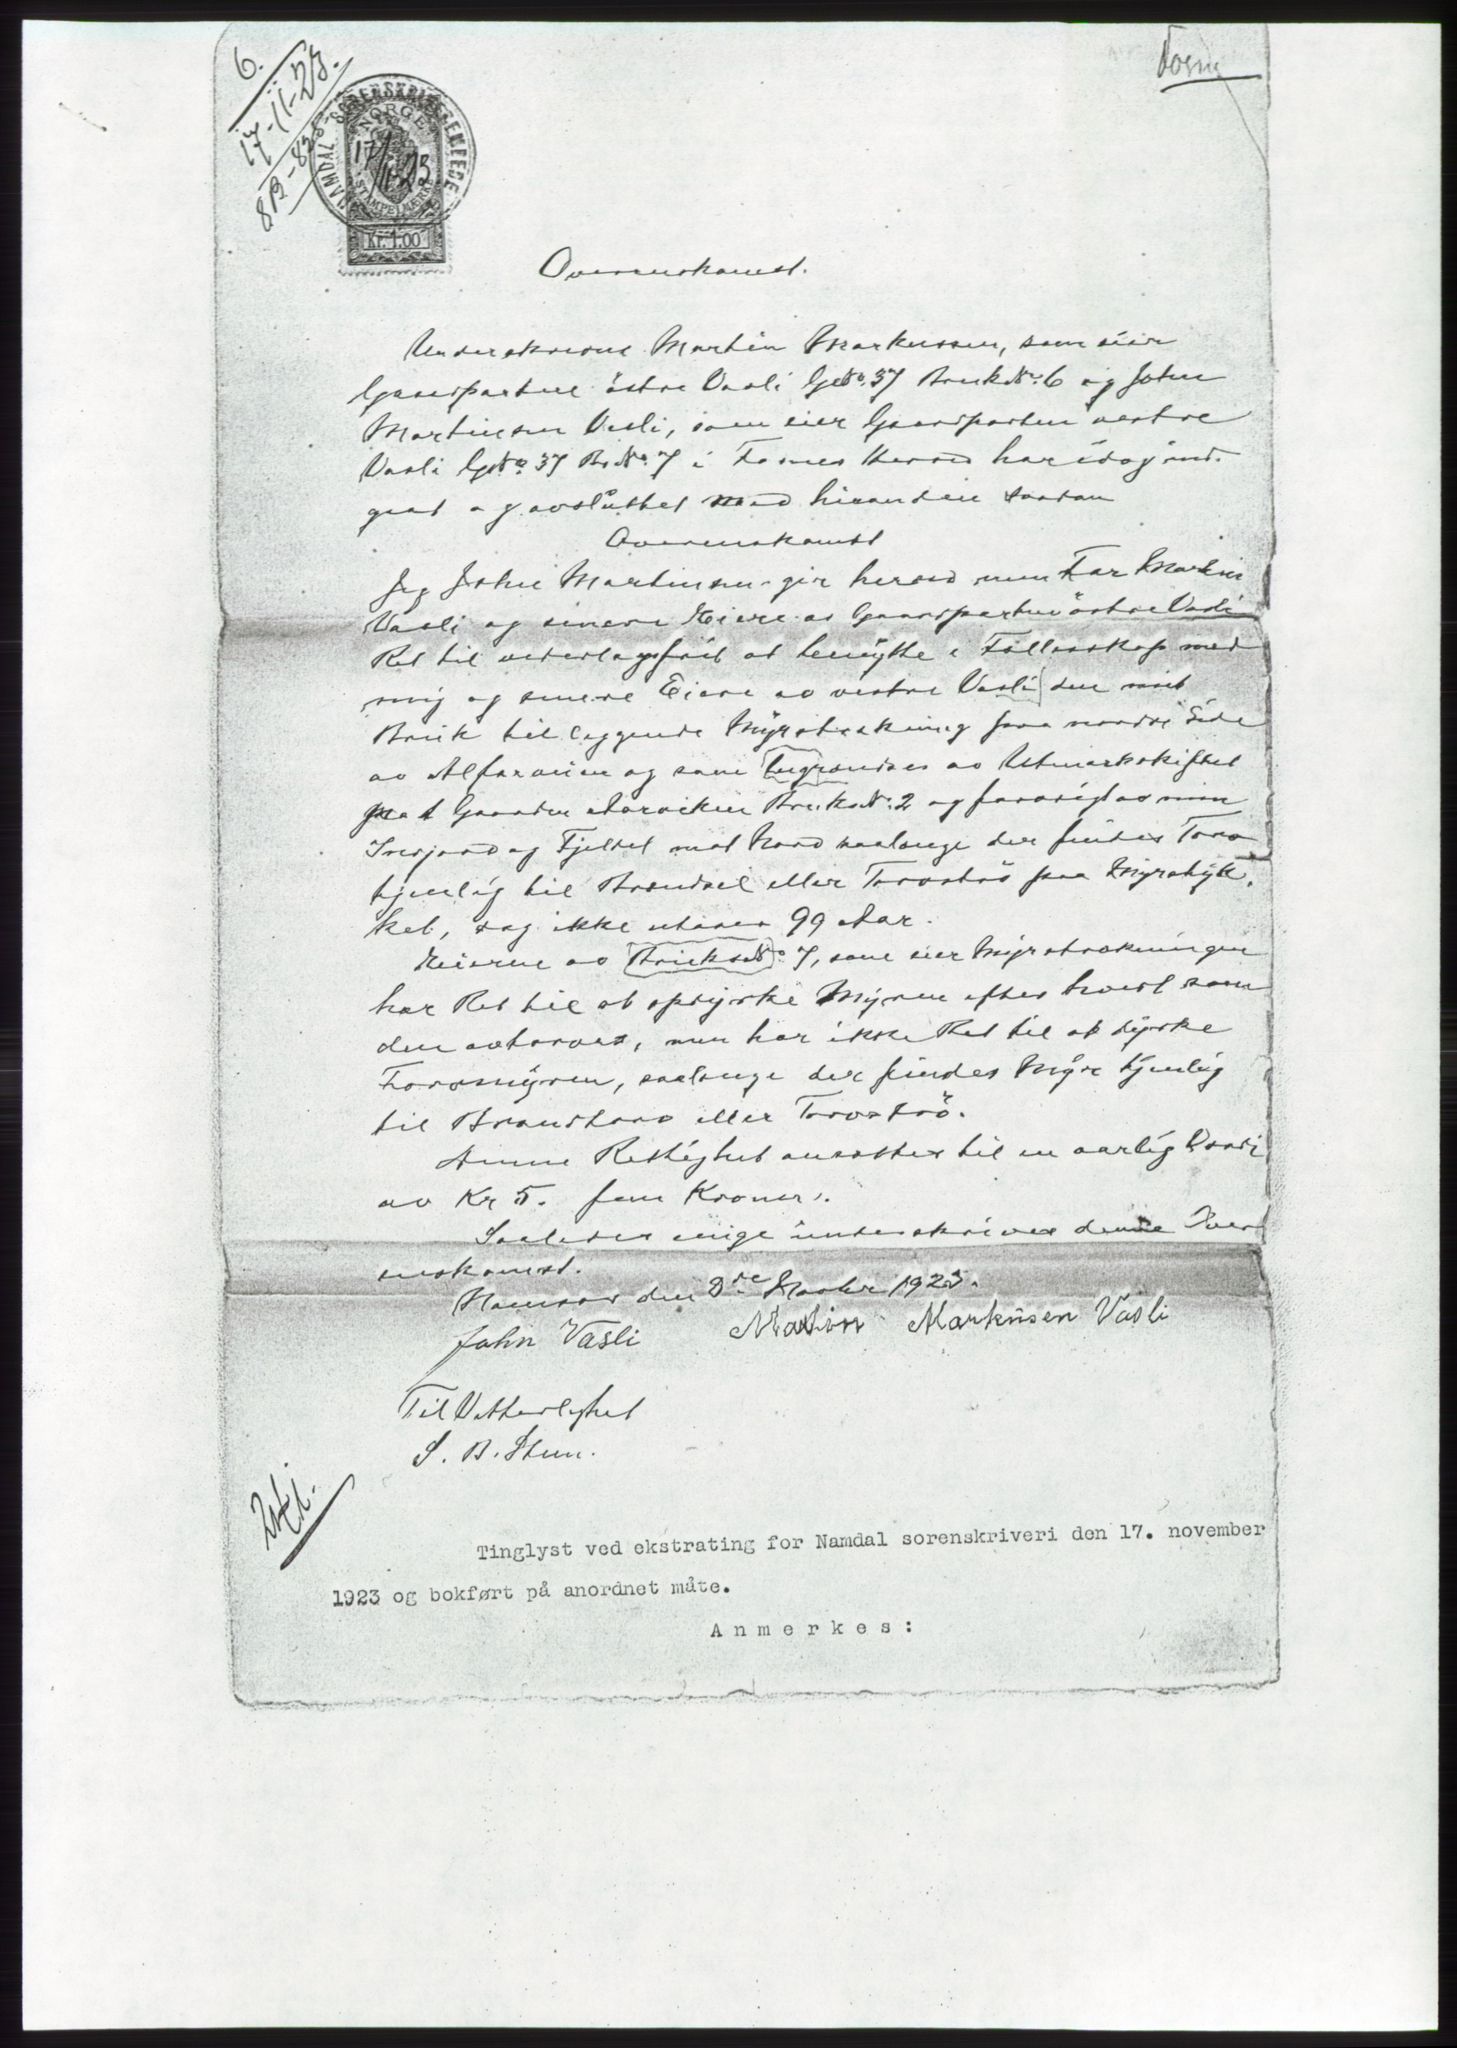 6.
17-11-23.
8B-825
NAMDAL SORENSKRIVEREMBEDE
NORGE
17/11-23
STEMPELMERKE
Kr. 1.00
Fosnes
Overenskomst.
Underskrevne Martin Markussen, som eier
Gaardparten östre Vasli GNo. 37 BruksNr. 6 og John
Martinsen Vasli, som eier Gaardparten vestre
Vasli GNo. 37 BrNo. 7 i Fosnes Herred har idag ind-
gaat og avsluttet med hinanden saadan
Overenskomst
Jeg John Martinsen gir herved min Far Martin
Vasli og senere Eiere av Gaardparten östre Vasli
Ret til vederlagsfrit at benytte i Fællesskap med
mig og senere Eiere av vestre Vasli den mit
Bruk tilliggende Myrstrækning paa nordre Side
av og som begrændses av Utmarkskiftet
mot Gaarden BruksNr. 2 og forövrig av min
og Fjeldet mot Nord saalenge der findes Torv
tjenlig til Brændsel eller Torvströ paa Myrstyk-
ket, dog ikke utover 99 Aar.
Eieren av BruksNo 7, som eier Myrstrækningen
har Ret til at opdyrke Myren efter hvert som
den avtorves, men har ikke Ret til at dyrke
Torvmyren, saalenge der findes Myr tjenlig
til Brændtorv eller Torvströ.
Denne Rettighet ansættes til en aarlig Værdi
av Kr 5. fem Kroner.
Saaledes enige underskrives denne Over-
enskomst.
Namsos den 2de Novbr 1923.
John Vasli Martin Markussen Vasli
Til Vitterlighet
S. B. Sten.
Tinglyst ved ekstrating for Namdal sorenskriveri den 17. november
1923 og bokført på anordnet måte.
Anmerkes: